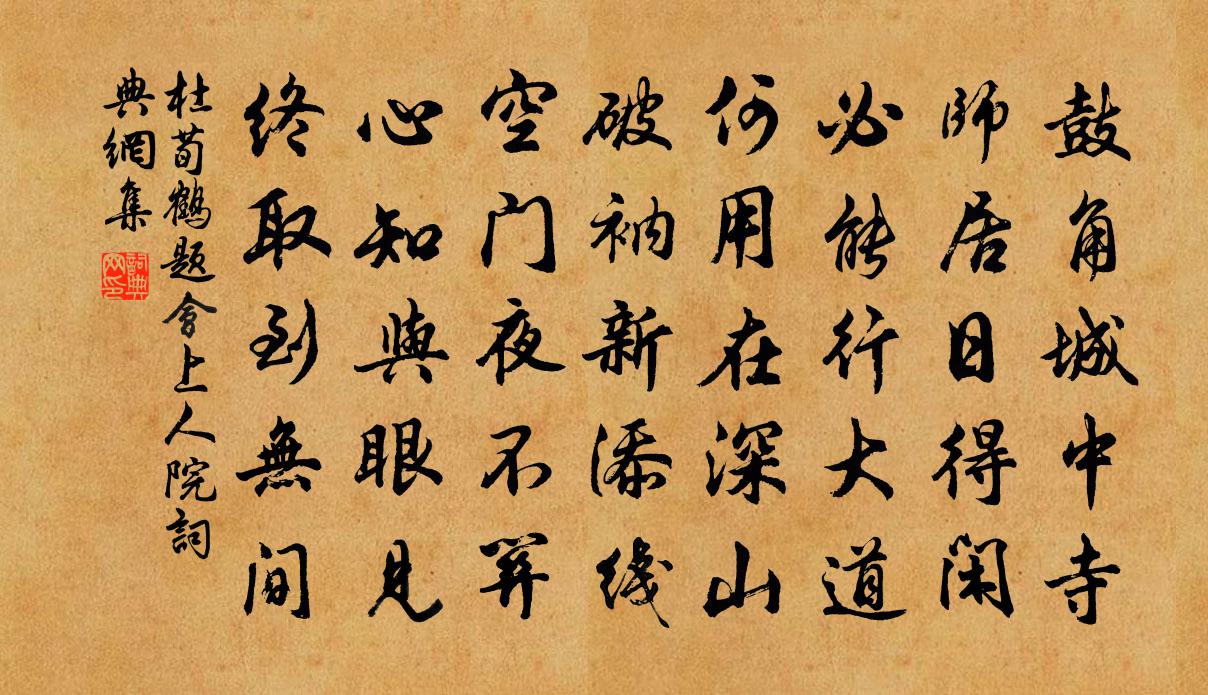 鼓角城中寺
師居日得閑
必能行大道
何用在深山
破衲新添线
空门夜不關
心知與眼見
終取到無间
杜荀鶴题會上人院詞
典網集
詞典网印